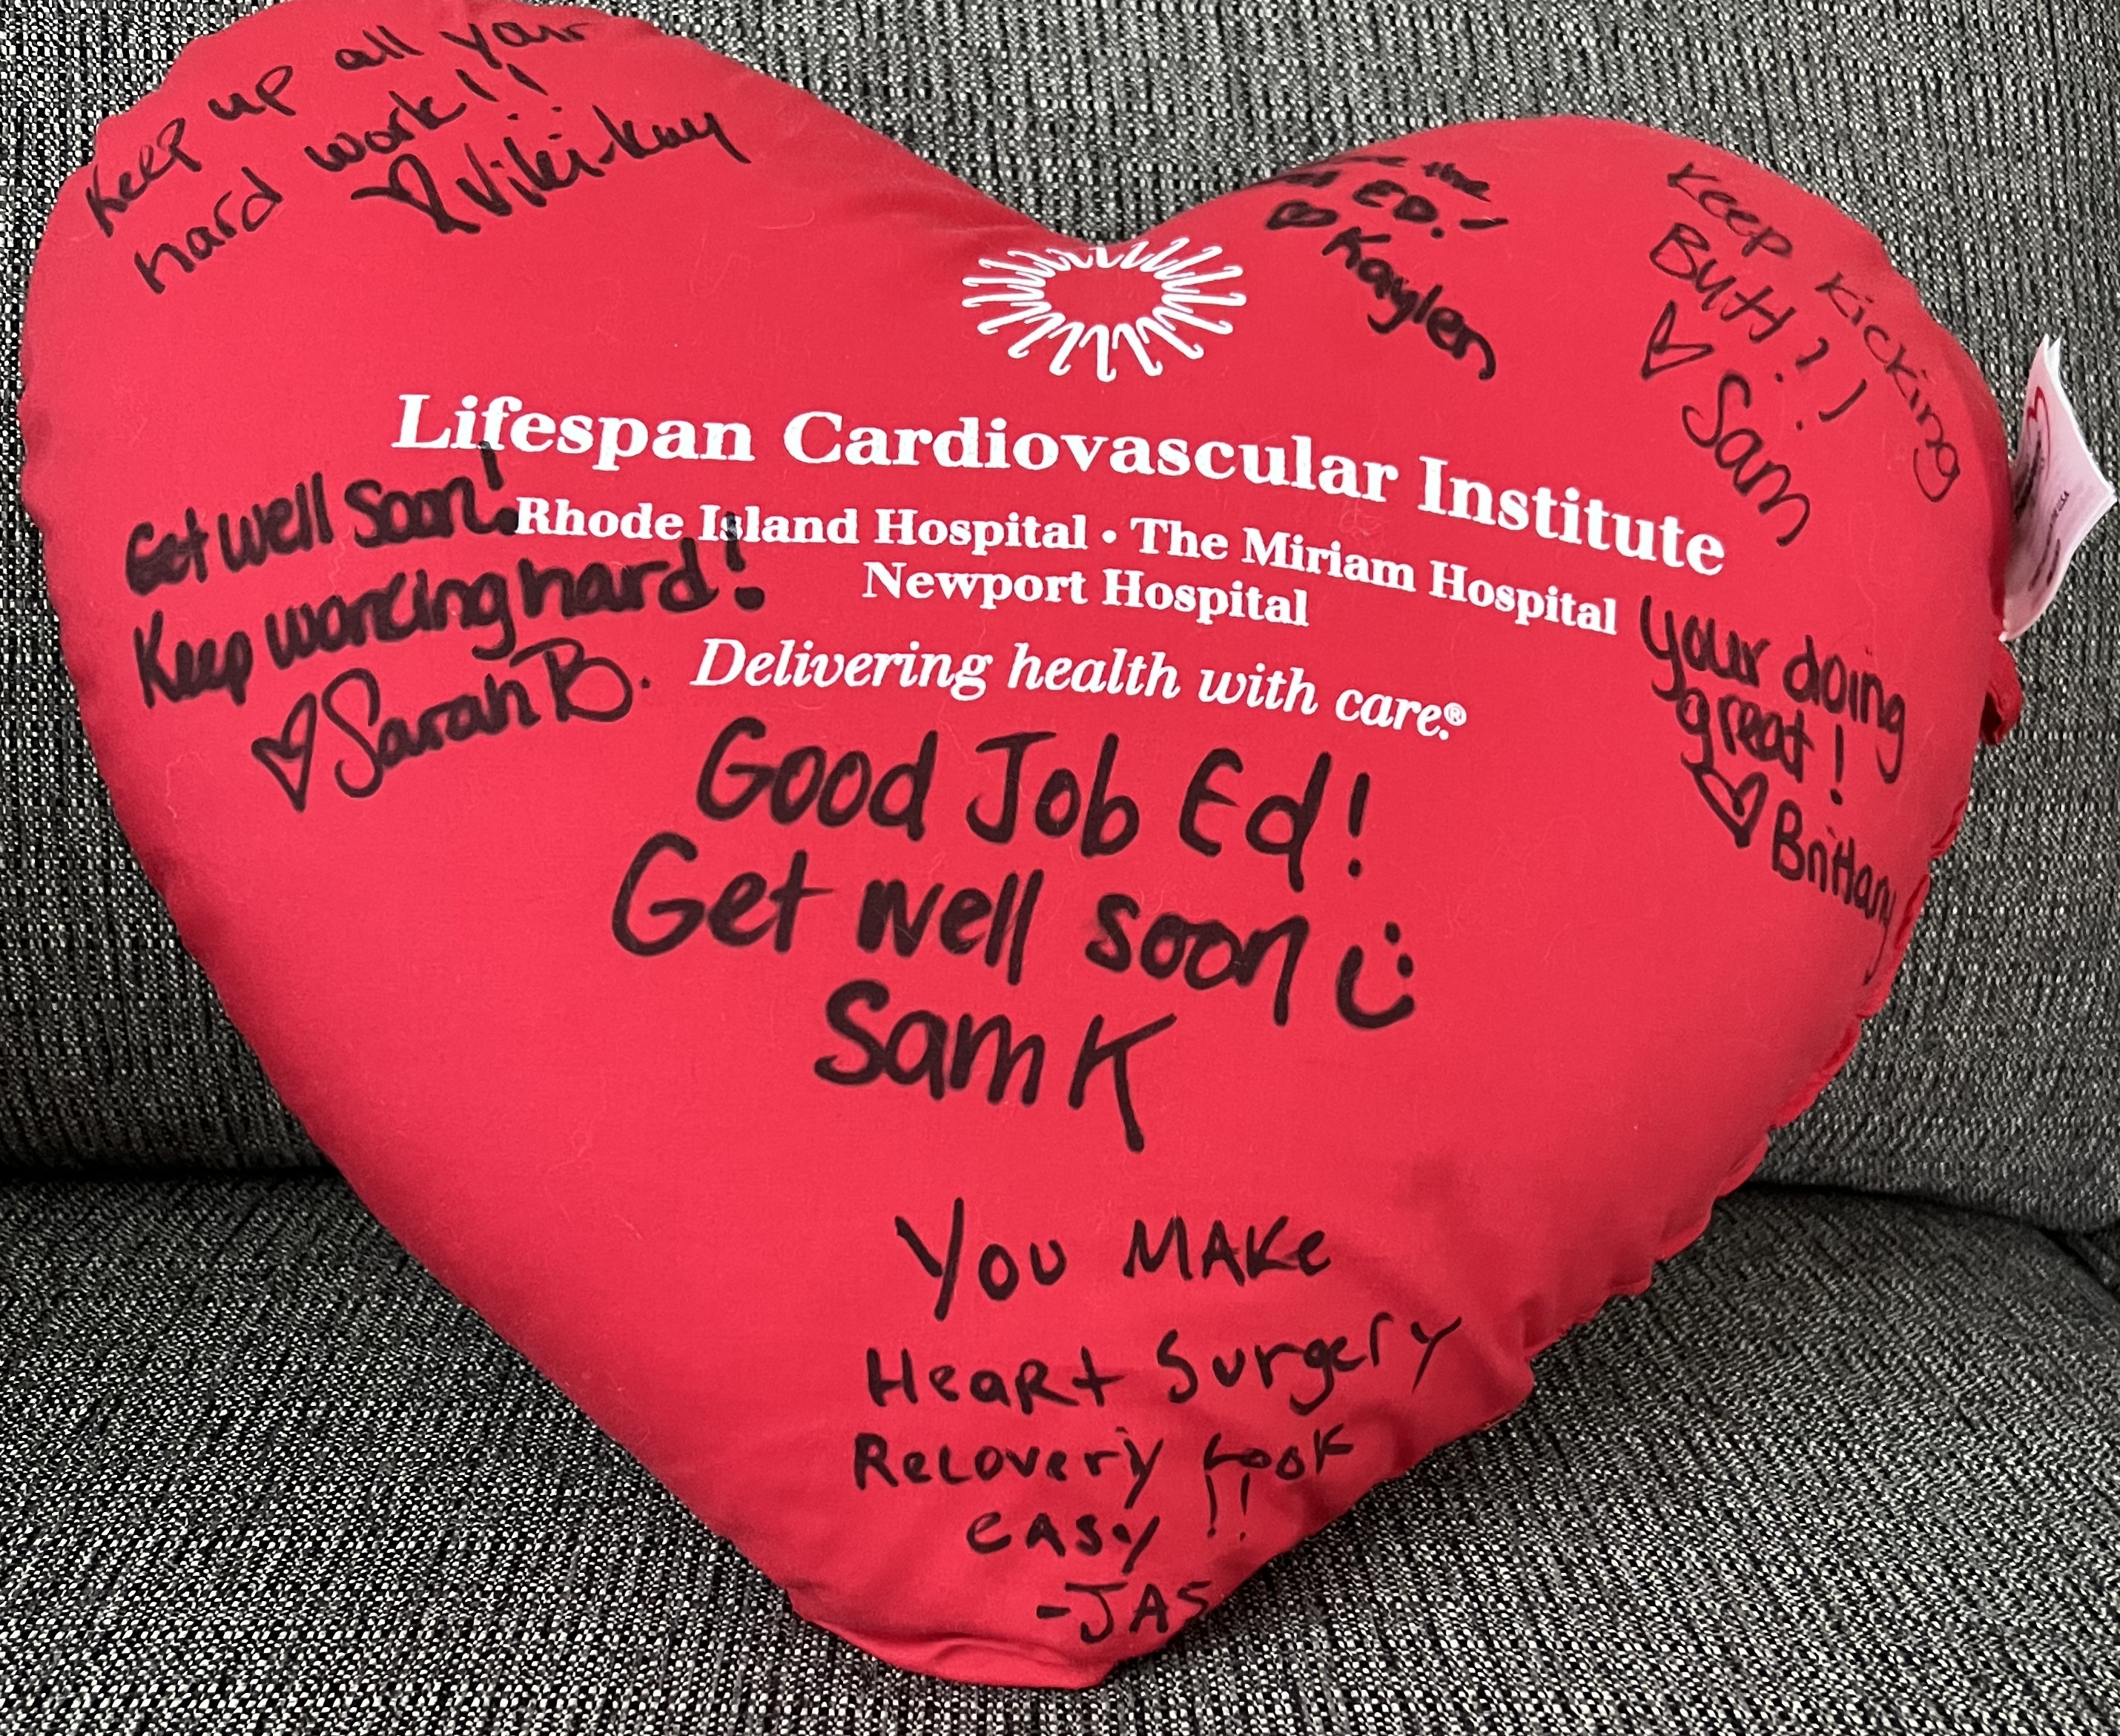 Keep up all your
hard work!!
Viki-kay
the
ED!
Kaylen
Keep Kicking
Butt!!
Sam
Lifespan Cardiovascular Institute
Rhode Island Hospital • The Miriam Hospital
Newport Hospital
Delivering health with care.®
Get well soon!
Keep working hard!
Sarah B.
your doing
great!
Brittany
Good Job Ed!
Get well soon
Sam K
You MAKe
HeaRt Surgery
Recovery Look
eASy !!
-JAS